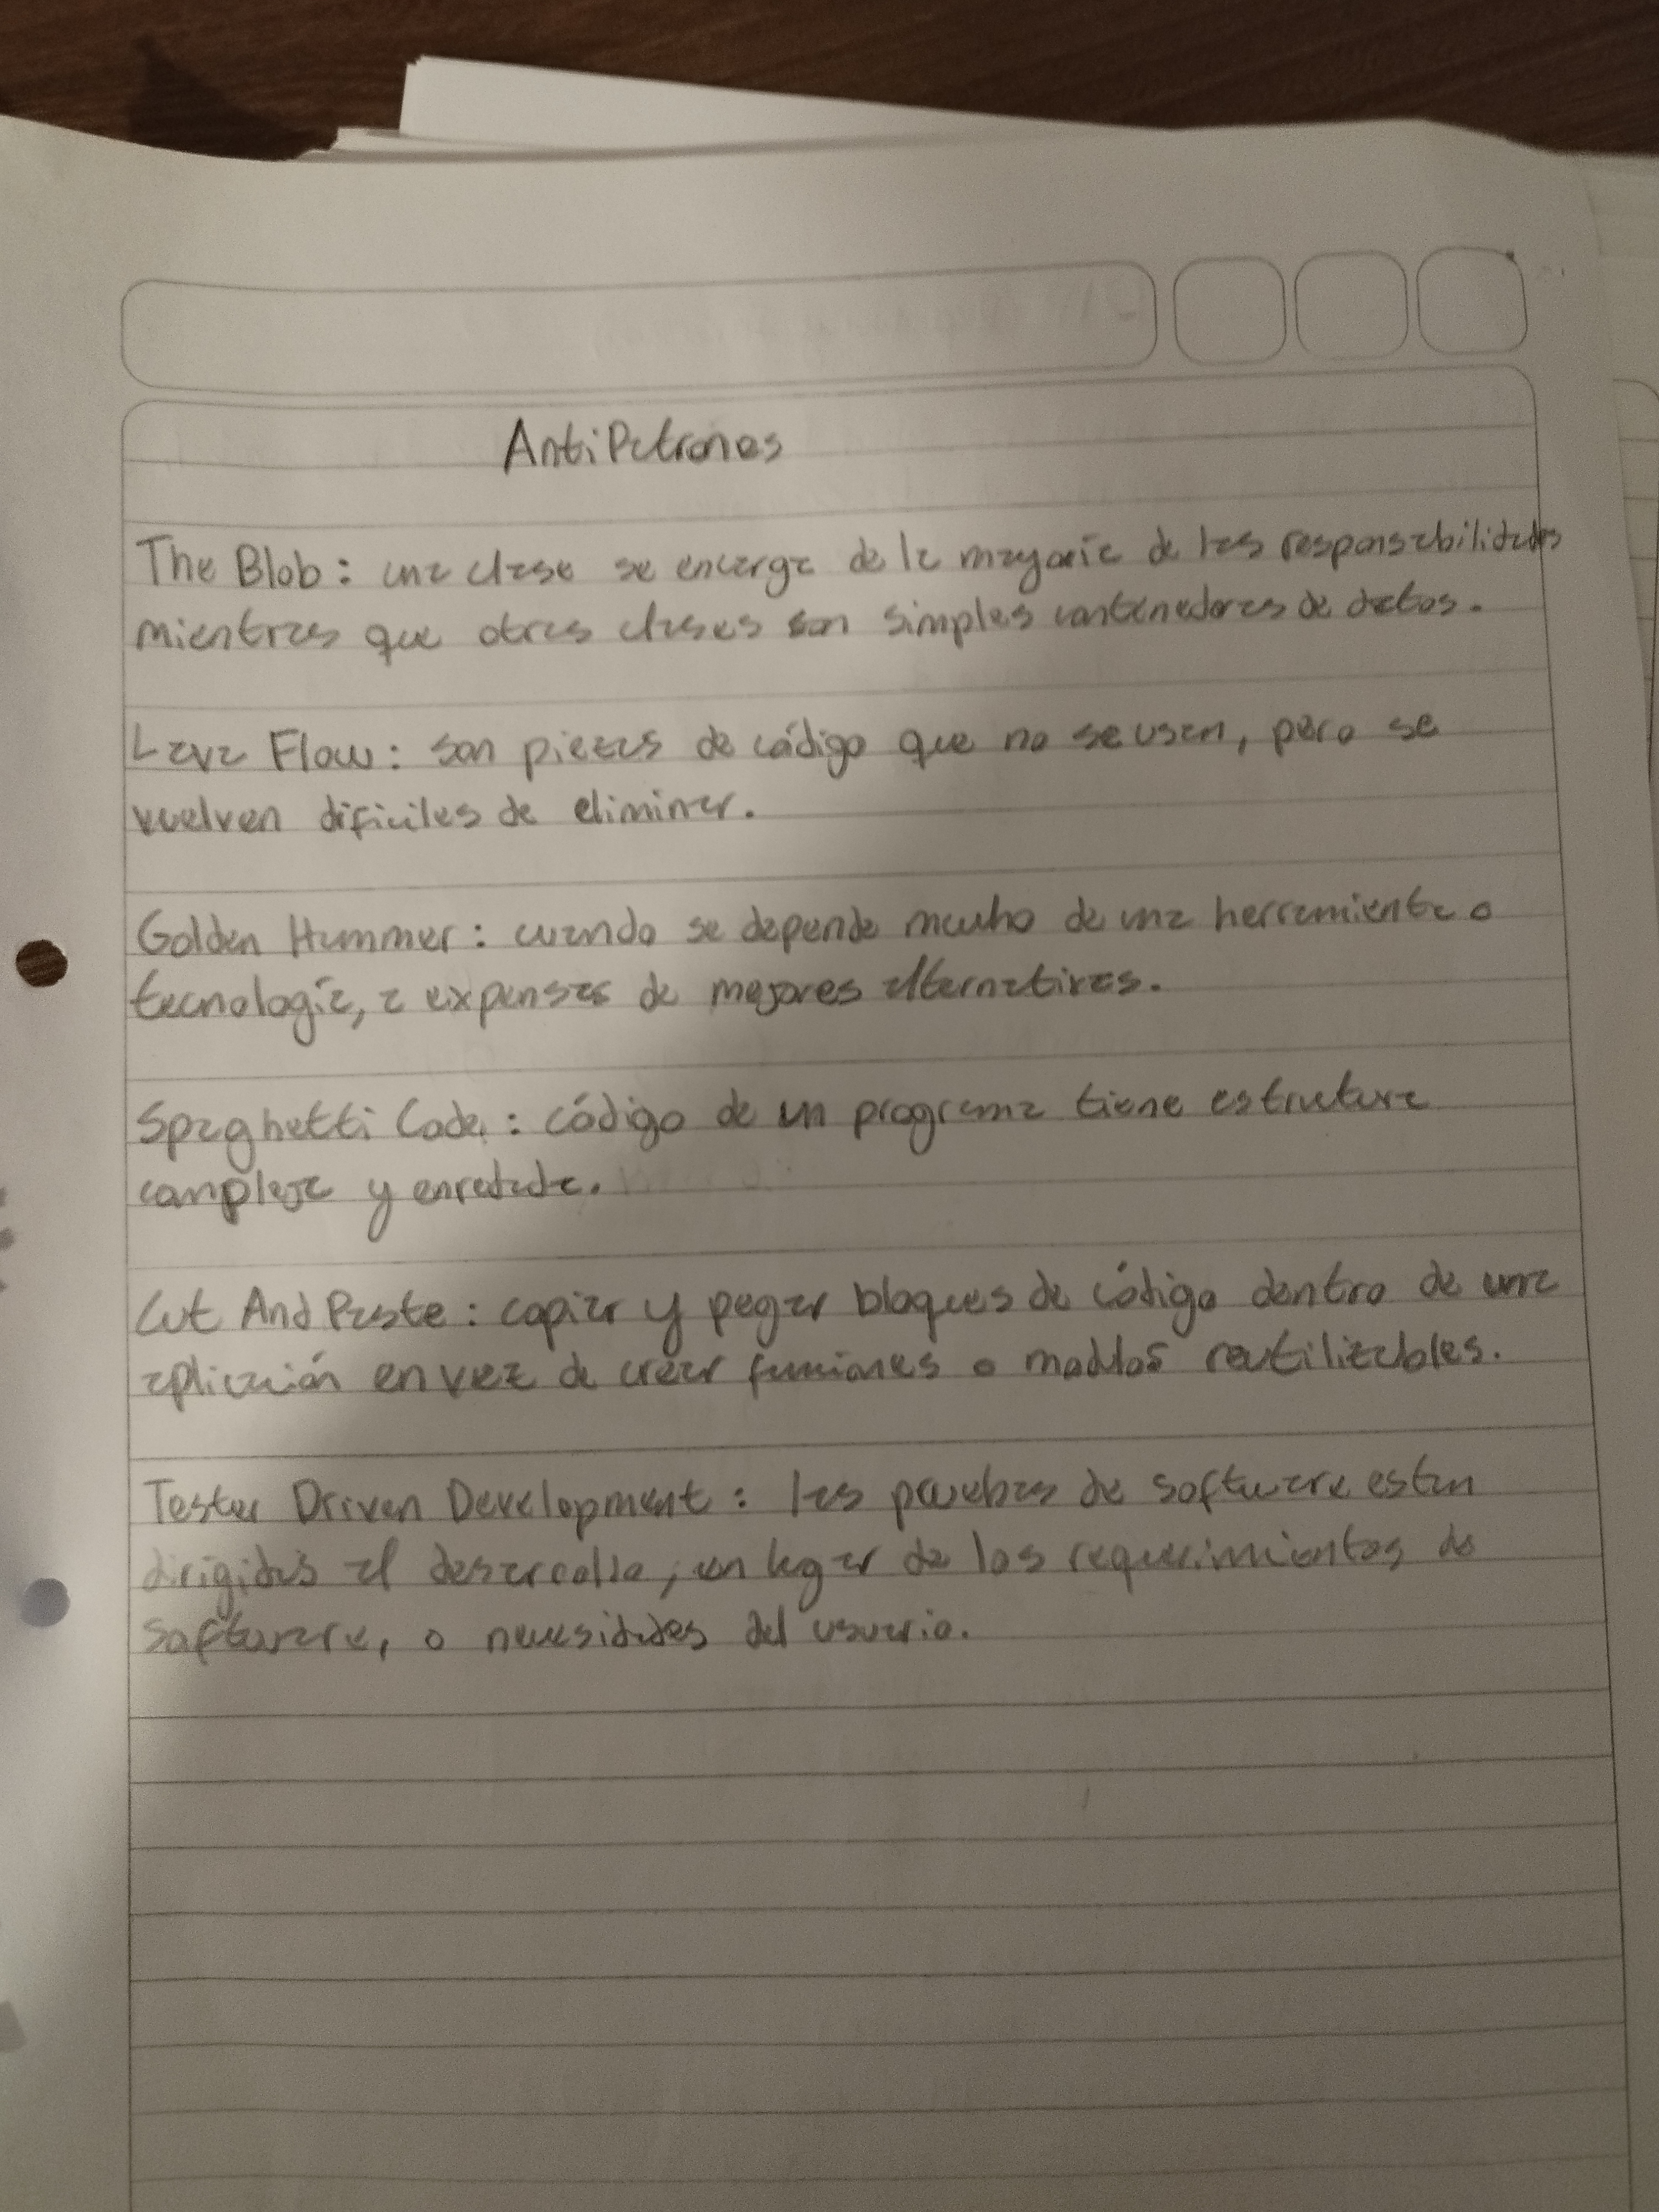 AntiPatrones
The Blob: una clase se encarga de la mayoría de las responsabilidades
mientras que otras clases son simples contenedores de datos.
Lava Flow: son piezas de código que no se usan, pero se
vuelven dificiles de eliminar.
Golden Hammer: cuando se depende mucho de una herramienta o
tecnología, a expensas de mejores alternativas.
Spaghetti Code: código de un programa tiene estructura
compleja y enredada.
Cut And Paste: copiar y pegar bloques de código dentro de una
aplicación en vez de crear funciones o modulos reutilizables.
Tester Driven Development: las pruebas de software estan
dirigidas al desarrollo, en lugar de los requerimientos de
software, o necesidades del usuario.